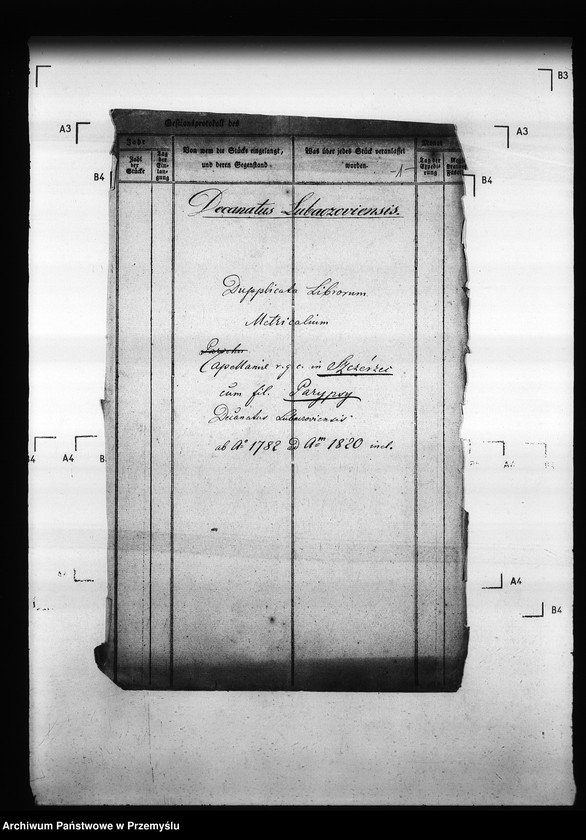 B3
A3
A3
B4
B4
Gestionsprotokoll des
Jahr
Monat
Zahl der Stücke
Tag der Einlangung
Von wem die Stücke eingelangt, und deren Gegenstand
Was über jedes Stück veranlasset worden
Tag der Expedirung
1
Decanatus Lubaczoviensis.
Dupplicata Librorum
Metricalium
Capellaniae r. g. c. in Szczérzec
cum fil. Parypsy
Decanatus Lubaczoviensis
ab Aº 1782 ad Aum 1820 incl.
B4
A4
B
A4
A4
B4
Archiwum Państwowe w Przemyślu